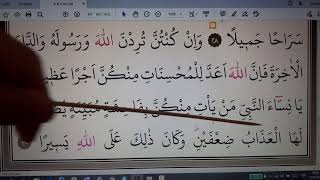 سَرَاحًا جَمِيلًا ٢٨ وَاِنْ كُنْتُنَّ تُرِدْنَ اللّٰهَ وَرَسُولَهُ وَالدَّارَ
الْاٰخِرَةَ فَاِنَّ اللّٰهَ اَعَدَّ لِلْمُحْسِنَاتِ مِنْكُنَّ اَجْرًا
يَا نِسَٓاءَ النَّبِيِّ مَنْ يَأْتِ مِنْكُنَّ
لَهَا الْعَذَابُ ضِعْفَيْنِ وَكَانَ ذٰلِكَ عَلَى اللّٰهِ يَسِيرًا